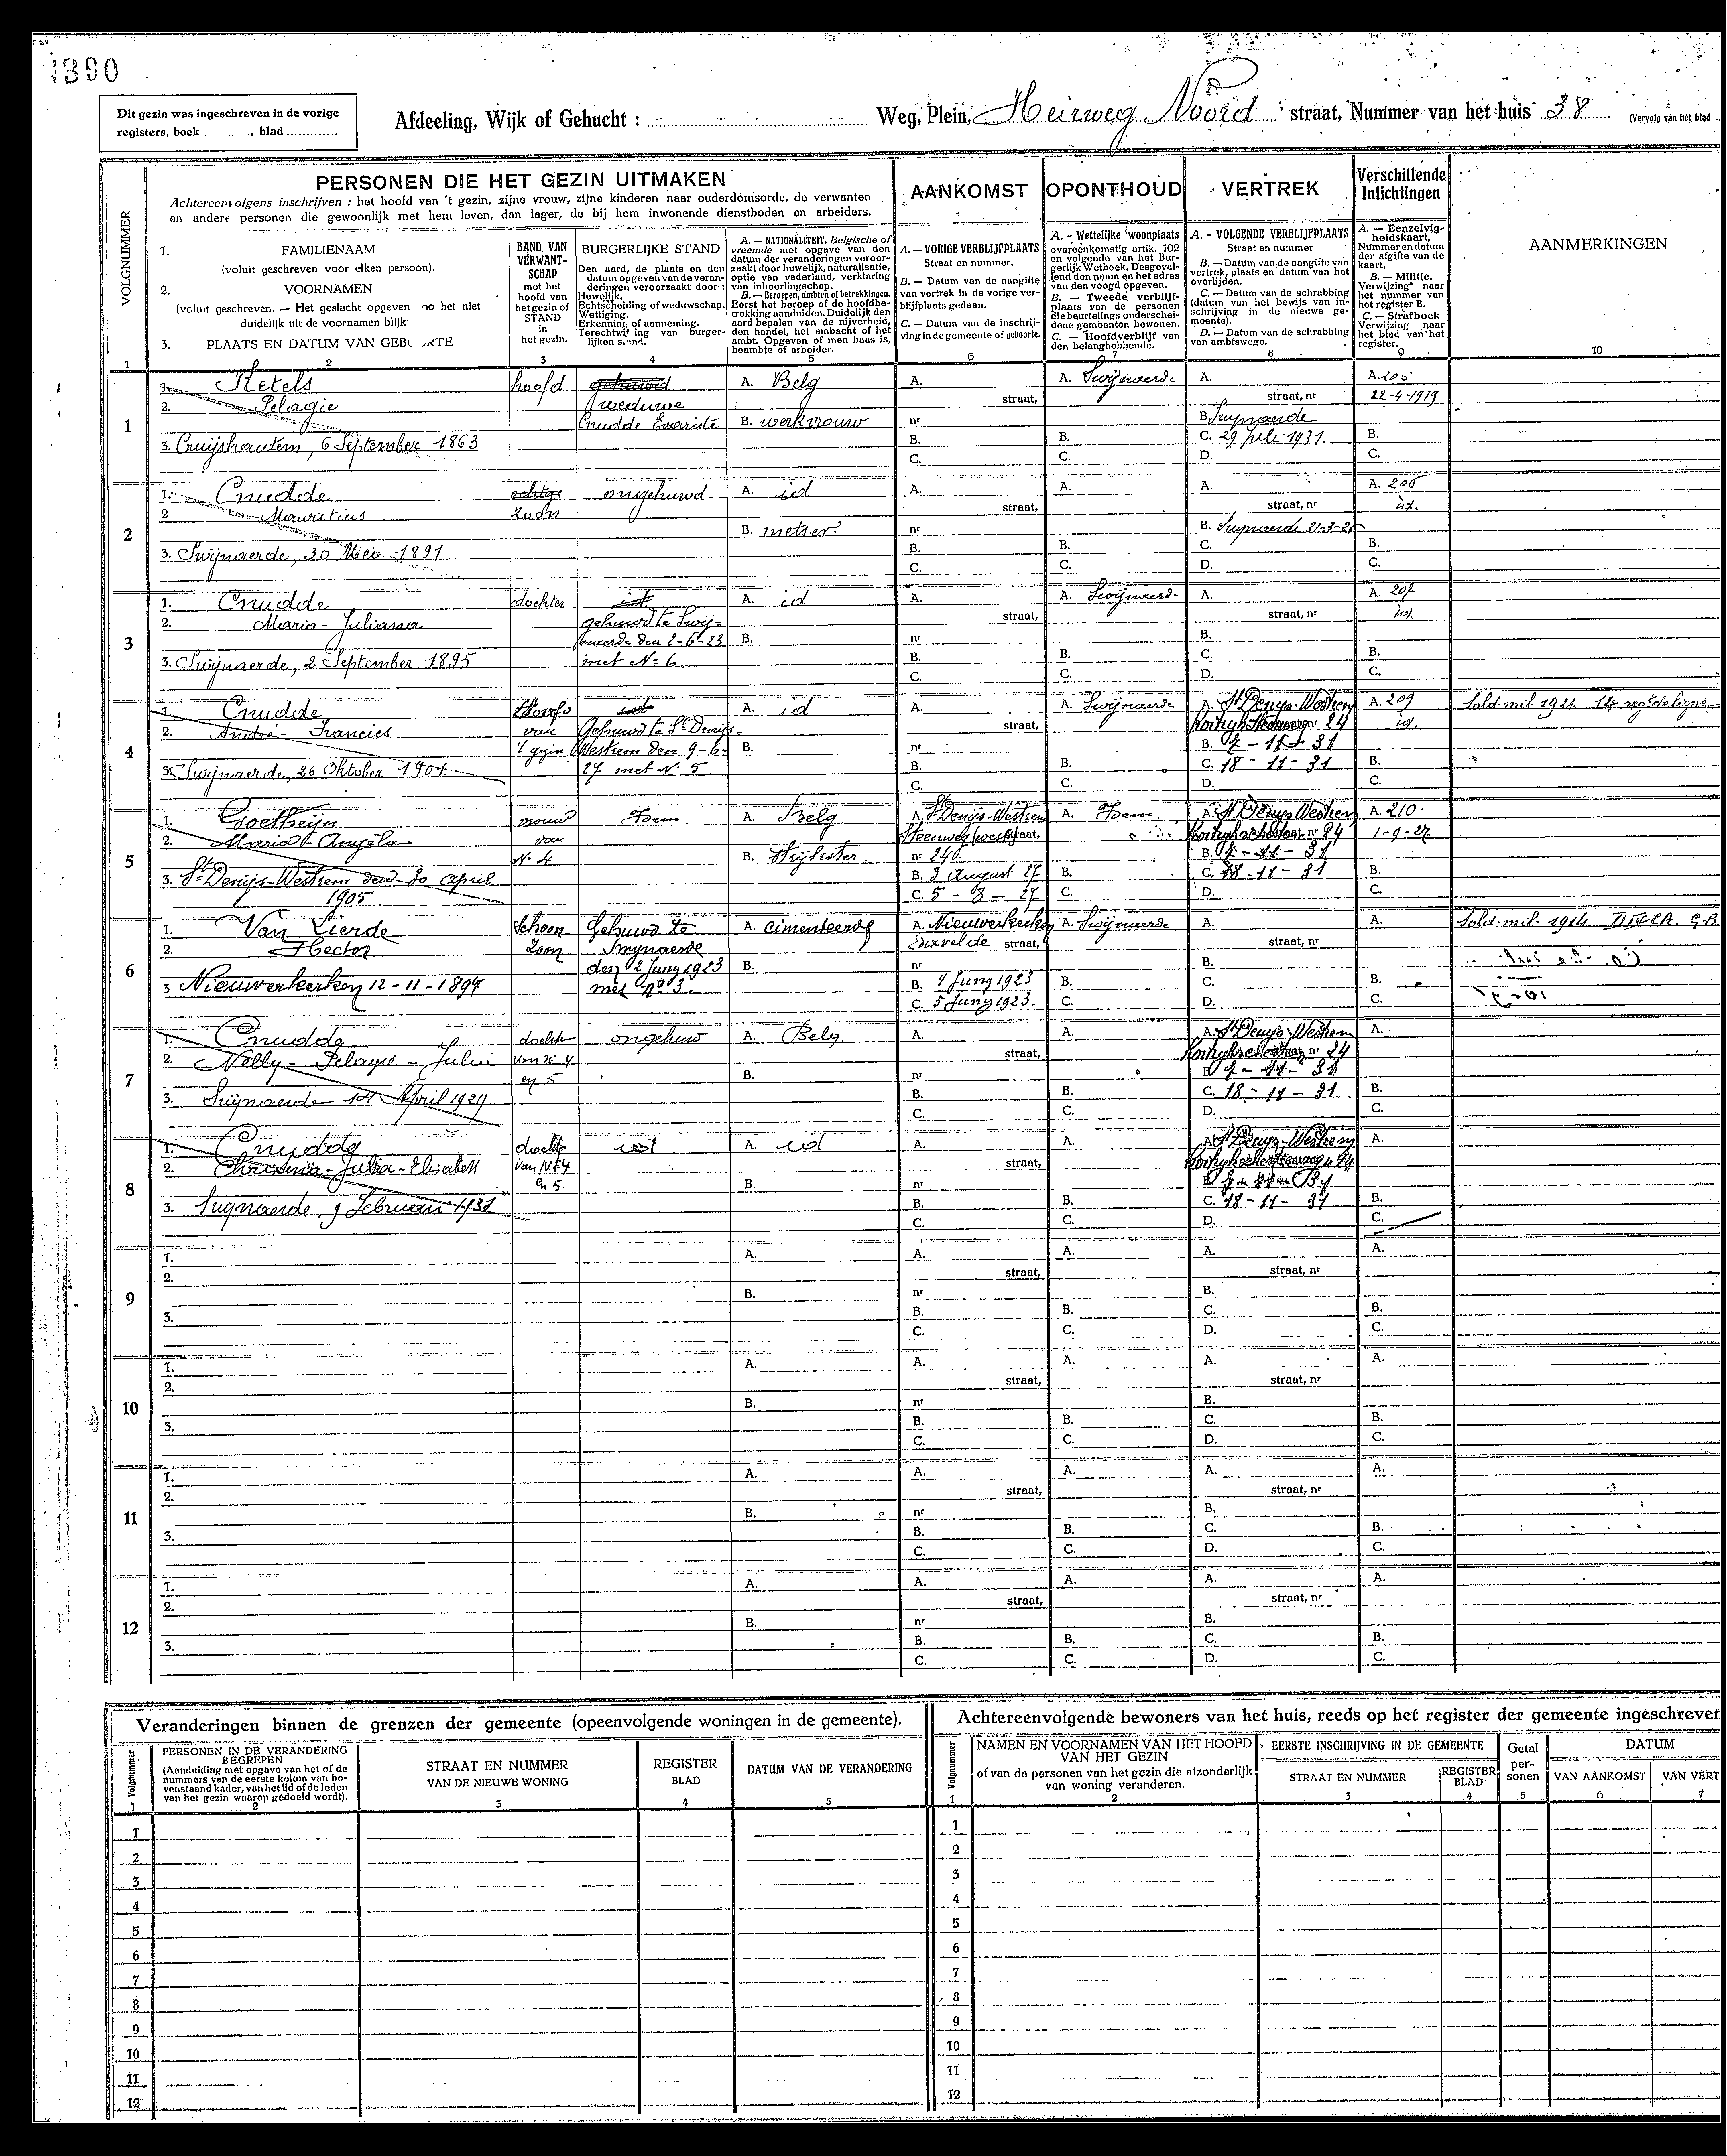 1390
Dit gezin was ingeschreven in de vorige
registers, boek , blad
Afdeeling, Wijk of Gehucht : Weg, Plein, Heirweg Noord straat, Nummer van het huis 38 (Vervolg van het blad
VOLGNUMMER
PERSONEN DIE HET GEZIN UITMAKEN
Achtereenvolgens inschrijven : het hoofd van 't gezin, zijne vrouw, zijne kinderen naar ouderdomsorde, de verwanten
en andere personen die gewoonlijk met hem leven, dan lager, de bij hem inwonende dienstboden en arbeiders.
1. FAMILIENAAM
(voluit geschreven voor elken persoon).
2. VOORNAMEN
(voluit geschreven. — Het geslacht opgeven het niet
duidelijk uit de voornamen blijk
3. PLAATS EN DATUM VAN
BAND VAN
VERWANT-
SCHAP
met het
hoofd van
het gezin of
STAND
in
het gezin.
BURGERLIJKE STAND
Den aard, de plaats en den
datum opgeven van de veran-
deringen veroorzaakt door :
Huwelijk.
Echtscheiding of weduwschap.
Wettiging.
Erkenning of aanneming.
Terechtwijzing van burger-
lijken stand.
A. — NATIONALITEIT. Belgische of
vreemde met opgave van den
datum der veranderingen veroor-
zaakt door huwelijk, naturalisatie,
optie van vaderland, verklaring
van inboorlingschap.
B. — Beroepen, ambten of betrekkingen.
Eerst het beroep of de hoofdbe-
trekking aanduiden. Duidelijk den
aard bepalen van de nijverheid,
den handel, het ambacht of het
ambt. Opgeven of men baas is,
beambte of arbeider.
AANKOMST
A. — VORIGE VERBLIJFPLAATS
Straat en nummer.
B. — Datum van de aangifte
van vertrek in de vorige ver-
blijfplaats gedaan.
C. — Datum van de inschrij-
ving in de gemeente of geboorte.
OPONTHOUD
A. - Wettelijke woonplaats
overeenkomstig artik. 102
en volgende van het Bur-
gerlijk Wetboek. Desgeval-
lend den naam en het adres
van den voogd opgeven.
B. — Tweede verblijf-
plaats van de personen
die beurtelings onderschei-
dene gemeenten bewonen.
C. — Hoofdverblijf van
den belanghebbende.
VERTREK
A. - VOLGENDE VERBLIJFPLAATS
Straat en nummer
B. — Datum van de aangifte van
vertrek, plaats en datum van het
overlijden.
C. — Datum van de schrabbing
(datum van het bewijs van in-
schrijving in de nieuwe ge-
meente).
D. — Datum van de schrabbing
van ambtswege.
Verschillende
Inlichtingen
A. — Eenzelvig-
heidskaart.
Nummer en datum
der afgifte van de
kaart.
B. — Militie.
Verwijzing naar
het nummer van
het register B.
C. — Strafboek
Verwijzing naar
het blad van het
register.
AANMERKINGEN
1 2 3 4 5 6 7 8 9 10
1. Ketels hoofd gehuwd A. Belg A. A. Swijnaerde A. A. 205
2. Pelagie weduwe straat, straat, nr 22-4-1919
1 Cnudde Evariste B. werkvrouw nr B. Swijnaerde
3. Cruijshautem, 6 September 1863 B. B. C. 29 juli 1931. B.
C. C. D. C.
1. Cnudde ongehuwd A. id A. A. A. A. 206
2 Mauritius zoon straat, straat, nr id.
2 B. metser nr B. Swijnaerde 31-3-
3. Swijnaerde, 30 1891 B. B. C. B.
C. C. D. C.
1. Cnudde dochter id A. id A. A. Swijnaerde A. A. 207
2. Maria - Juliana gehuwd te Swij- straat, straat, nr id.
3 naerde den 2-6-23 B. nr B.
3. Swijnaerde, 2 September 1895 met No 6. B. B. C. B.
C. C. D. C.
1. Cnudde Hoofd id A. id A. A. Swijnaerde A. St Denys-Westrem A. 209 Sold. mil. 1921 14 reg. de ligne
2. André - Francies van Gehuwd te St Denijs- straat, nr 24 id.
4 't gezin Westrem den 9-6- B. nr B. 7 - 11 - 31
3. Swijnaerde, 26 Oktober 1901. 27 met No 5 B. B. C. 18 - 11 - 31 B.
C. C. D. C.
1. Goetheijn vrouw Idem A. Belg A. St Denijs-Westrem A. Idem A. St Denys Westrem A. 210.
2. Maria Angéla van Steenweg straat, nr 24 1-9-27
5 No 4 B. Strijkster nr 240. B. 7 - 11 - 31
3. St Denijs-Westrem den 30 April B. 3 August 27 B. C. 18 - 11 - 31 B.
1905 C. 5 - 8 - 27 C. D. C.
1. Van Lierde Schoon Gehuwd te A. cimenteerder A. Nieuwerkerken A. Swijnaerde A. A. Sold. mil. 1914 G.B
2. Hector zoon Swynaerde straat, straat, nr
6 den 2 Juny 1923 B. nr B.
3 Nieuwerkerken 12-11-1894 met No 3. B. 4 Juny 1923 B. C. B.
C. 5 Juny 1923. C. D. C.
1. Cnudde dochter ongehuwd A. Belg A. A. A. St Denys-Westrem A.
2. Nelly - Pelagie - Julia van No 4 straat, nr 24
7 en 5 B. nr B. 7 - 11 - 31
3. Swijnaerde April 1929 B. B. C. 18 - 11 - 31 B.
C. C. D. C.
1. Cnudde dochter id A. id A. A. A. St Denys-Westrem A.
2. Christina - Julia - Elisabeth van No 4 straat, 24
8 en 5. B. nr B. 7 - 11 - 31
3. Swijnaerde, 9 Februari 1931 B. B. C. 18 - 11 - 31 B.
C. C. D. C.
1. A. A. A. A. A.
2. straat, straat, nr
9 B. nr B.
3. B. B. C. B.
C. C. D. C.
1. A. A. A. A. A.
2. straat, straat, nr
10 B. nr B.
3. B. B. C. B.
C. C. D. C.
1. A. A. A. A. A.
2. straat, straat, nr
11 B. nr B.
3. B. B. C. B.
C. C. D. C.
1. A. A. A. A. A.
2. straat, straat, nr
12 B. nr B.
3. B. B. C. B.
C. C. D. C.
Veranderingen binnen de grenzen der gemeente (opeenvolgende woningen in de gemeente).
Volgnummer
PERSONEN IN DE VERANDERING
BEGREPEN
(Aanduiding met opgave van het of de
nummers van de eerste kolom van bo-
venstaand kader, van het lid of de leden
van het gezin waarop gedoeld wordt).
STRAAT EN NUMMER
VAN DE NIEUWE WONING
REGISTER
BLAD
DATUM VAN DE VERANDERING
1 2 3 4 5
1
2
3
4
5
6
7
8
9
10
11
12
Achtereenvolgende bewoners van het huis, reeds op het register der gemeente ingeschreven
Volgnummer
NAMEN EN VOORNAMEN VAN HET HOOFD
VAN HET GEZIN
of van de personen van het gezin die afzonderlijk
van woning veranderen.
EERSTE INSCHRIJVING IN DE GEMEENTE
STRAAT EN NUMMER
REGISTER
BLAD
Getal
per-
sonen
DATUM
VAN AANKOMST VAN VERT
1 2 3 4 5 6 7
1
2
3
4
5
6
7
8
9
10
11
12